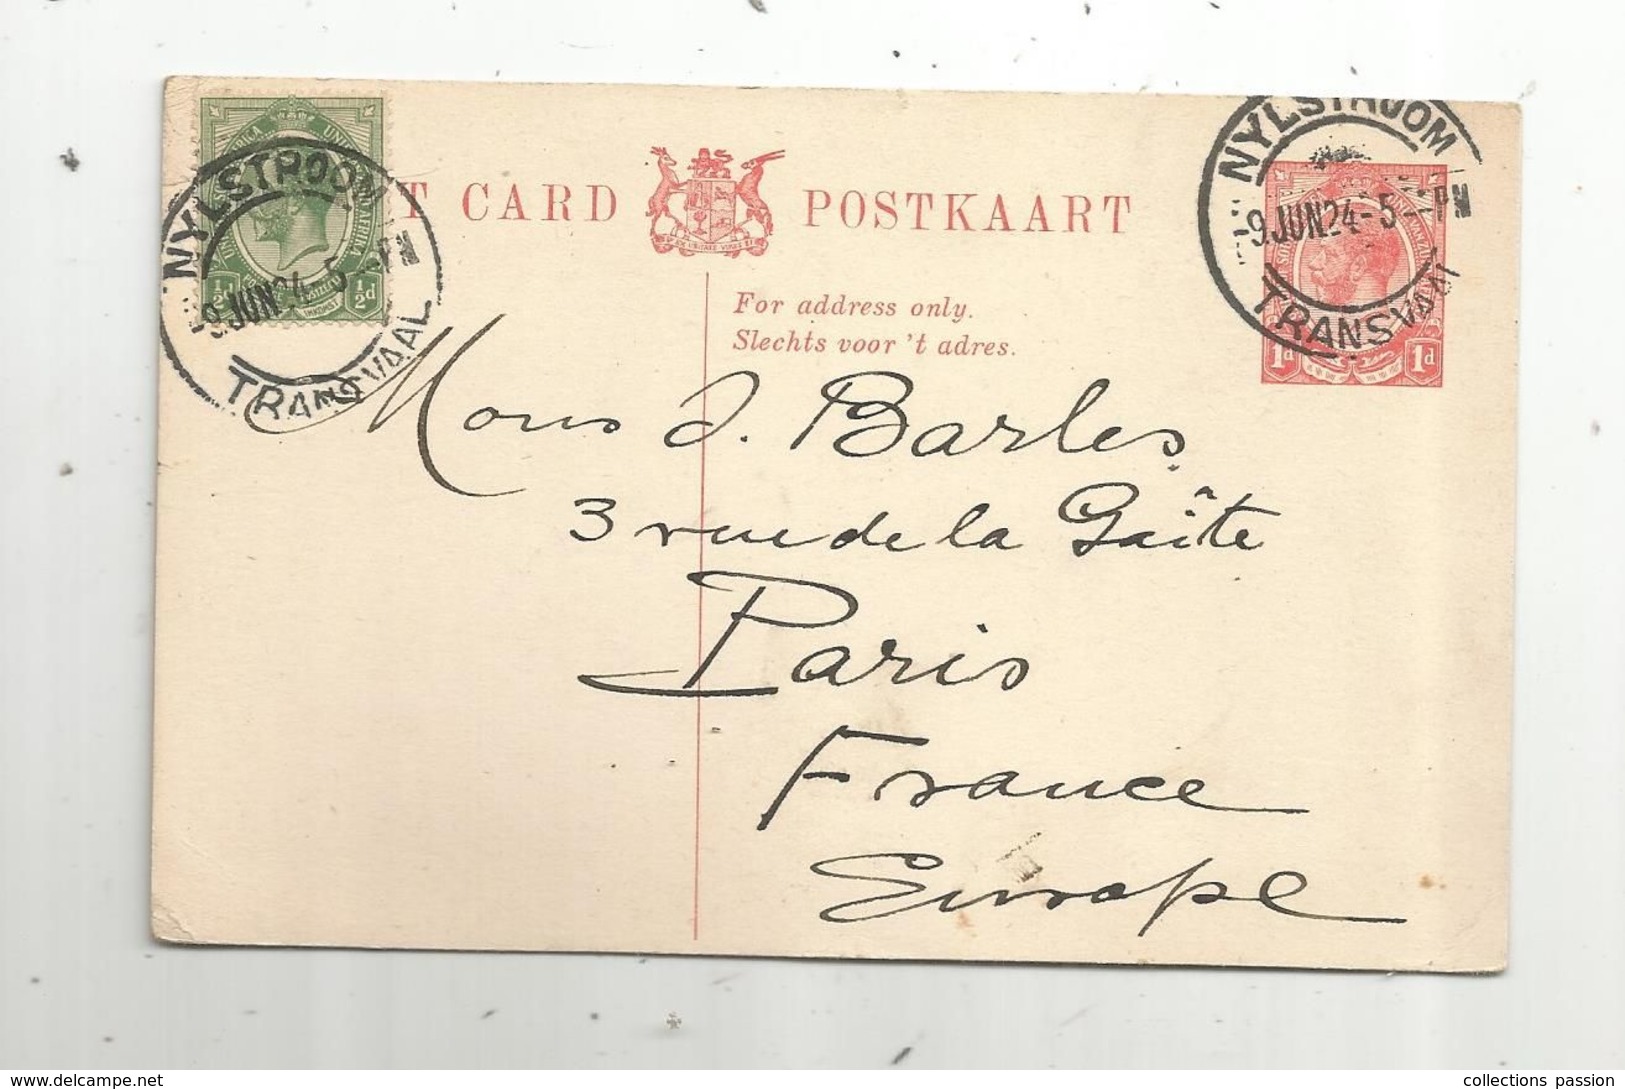 NYLSTROOM
9 JUN 24 - 5 - PM
TRANSVAAL
½d ½d
T CARD POSTKAART
NYLSTROOM
9 JUN 24 - 5 - PM
TRANSVAAL
1d 1d
For address only.
Slechts voor 't adres.
Mons J. Barles
3 rue de la Gaîte
Paris
France
Europe
collections passion